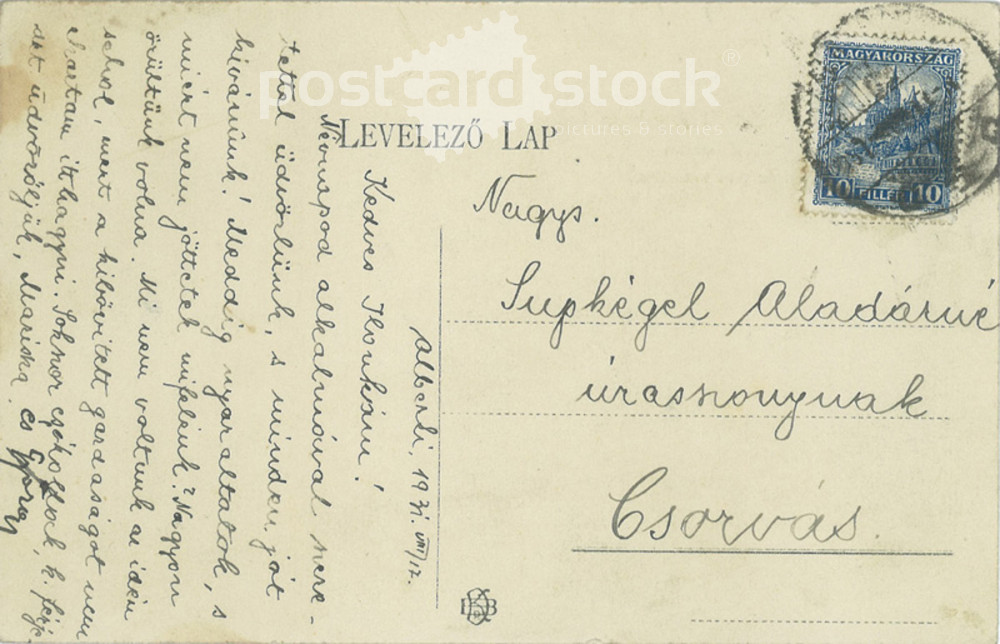 postcard stock
pictures & stories
MAGYARORSZÁG
10 FILLÉR 10
LEVELEZŐ LAP
Nagys.
Supkégel Aladárné
úrasszonynak
Csorvás.
Alberti, 1931. VIII/17.
Kedves Ilonkám!
Névnapod alkalmával szere-
tettel üdvözlünk, s minden jót
kívánunk! Meddig nyaraltatok, s
miért nem jöttetek mifelénk? Nagyon
örültünk volna. Mi nem voltunk az idén
sehol, mert a kibővített gazdaságot nem
itthagyni. Sokszor csókollak, k.
üdvözöljük, Mariska és György